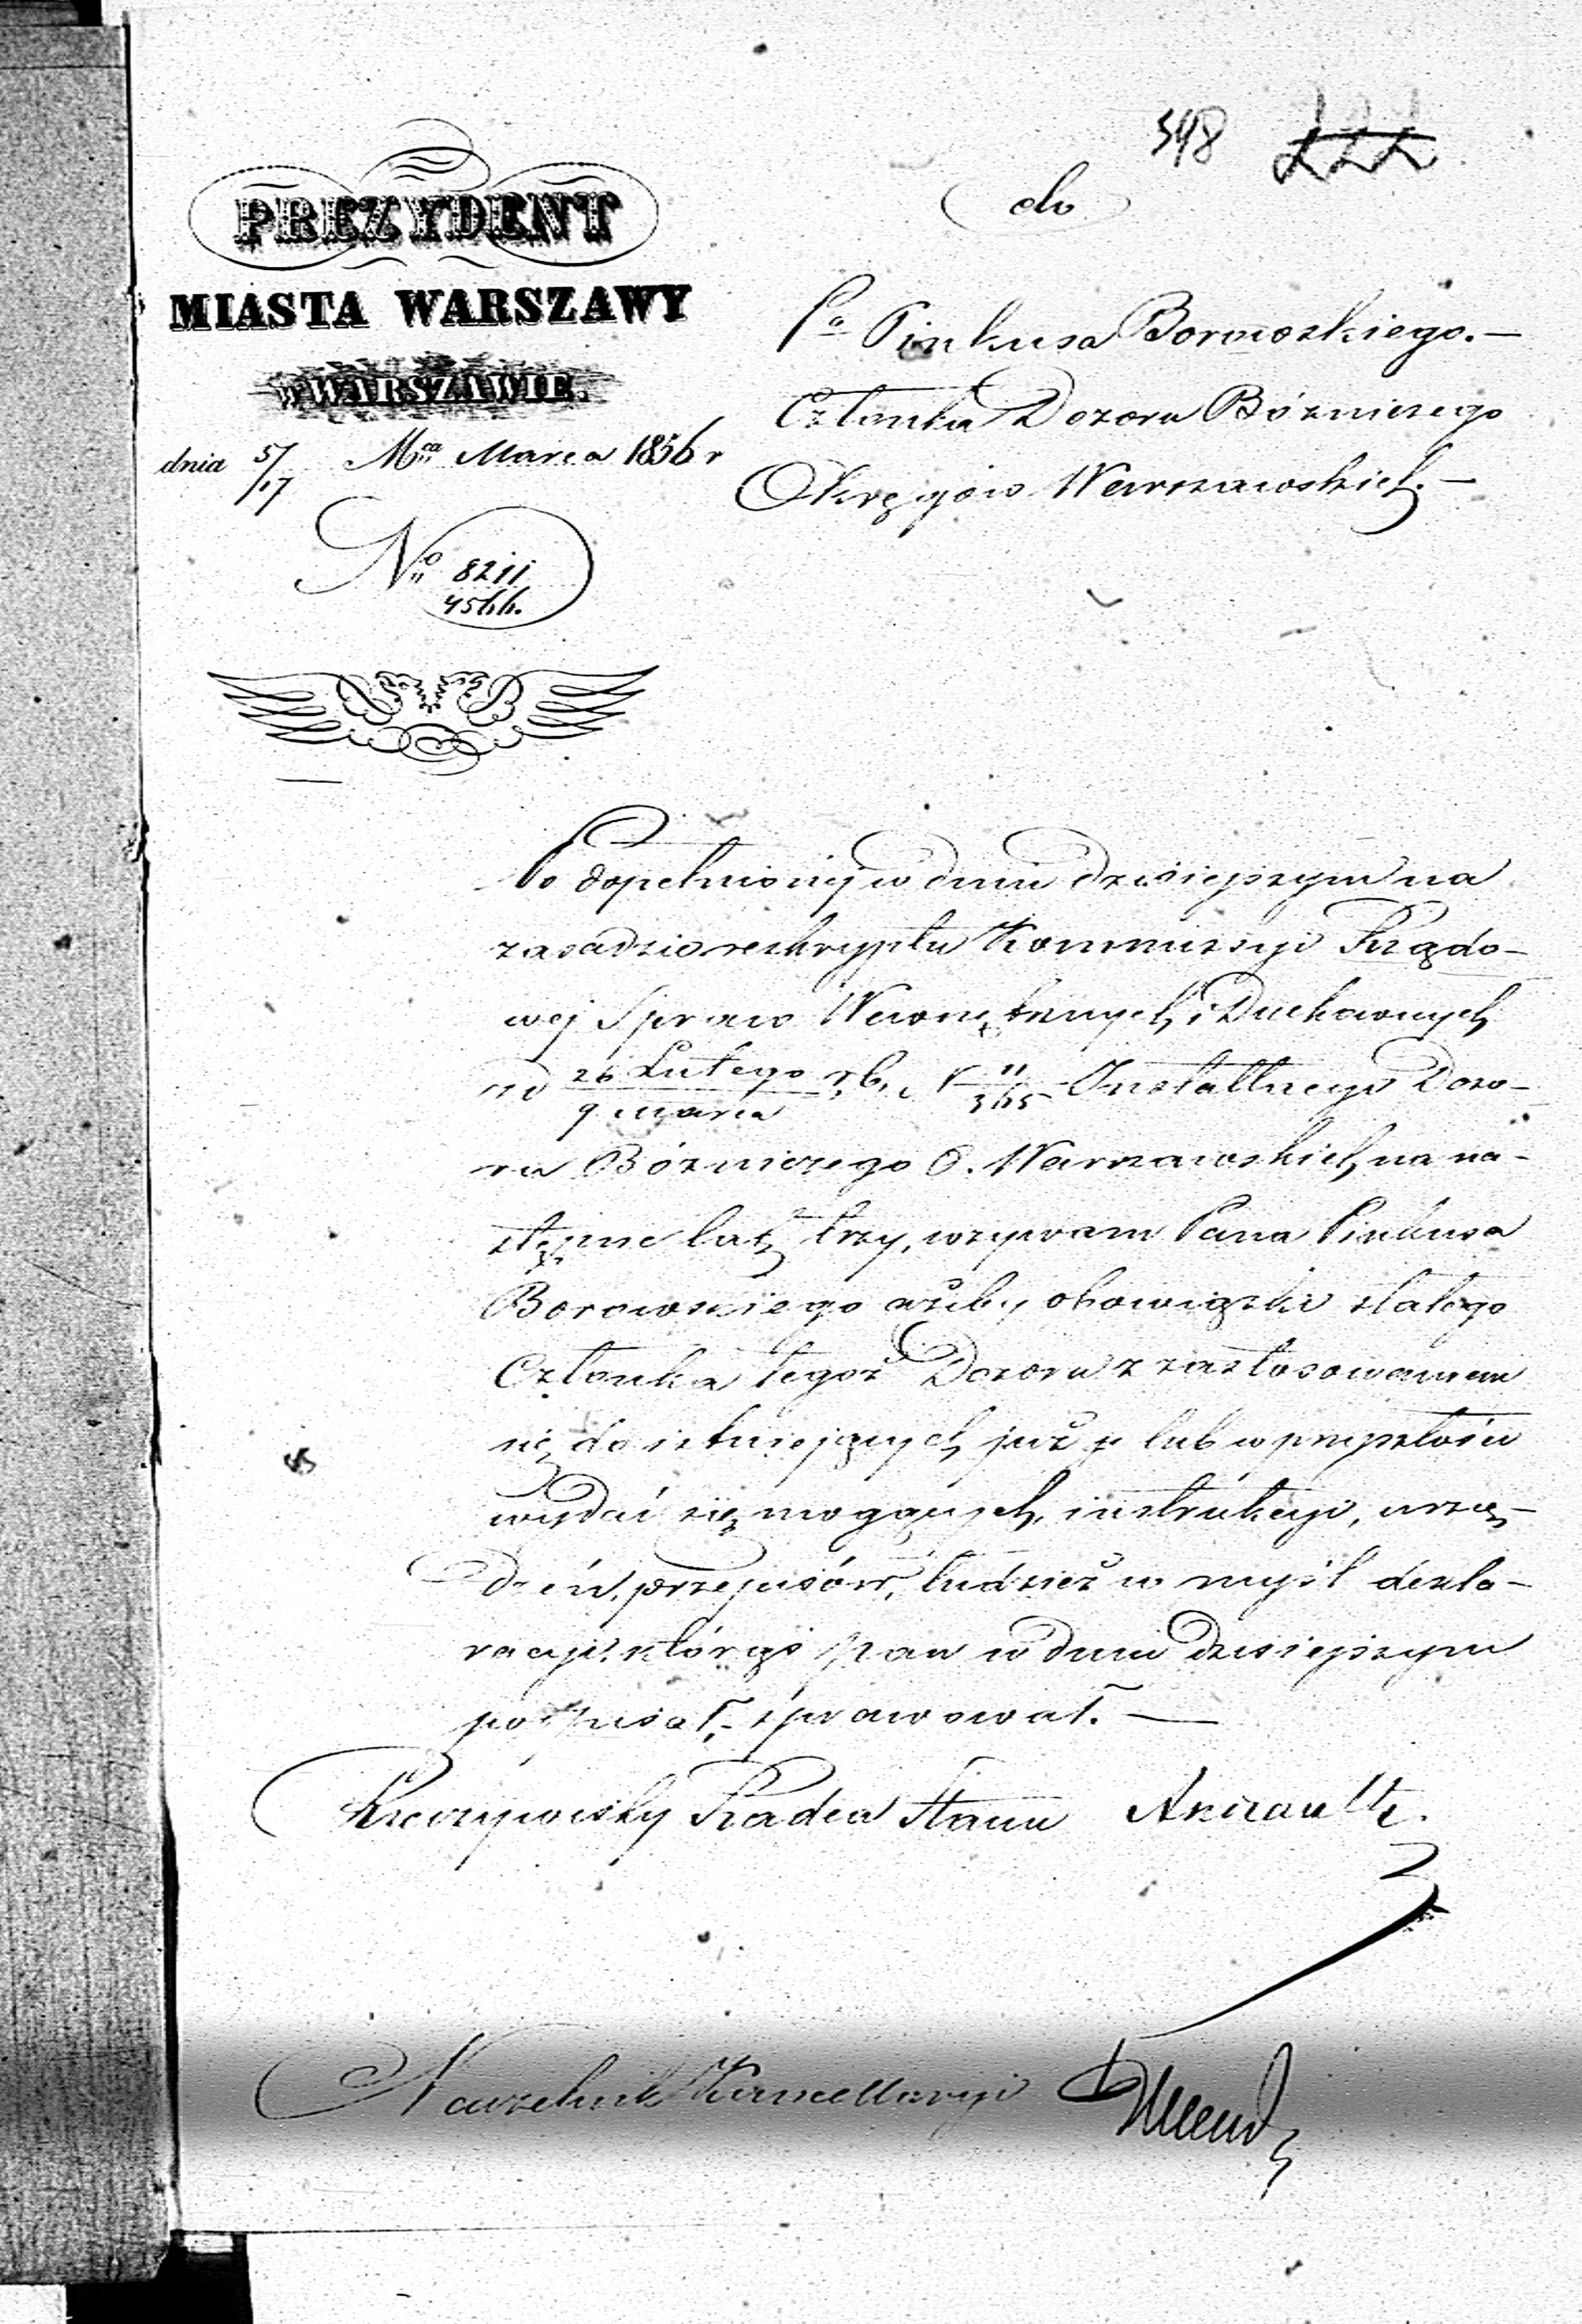 598
do
PREZYDENT
MIASTA WARSZAWY
W WARSZAWIE.
dnia 5/17 Mca Marca 1856 r
No 8211
4566.
Pa Pinkusa Borowskiego.—
Członka Dozoru Bóżniczego
Okręgów Warszawskich.—
Po dopełnionej w dniu dzisiejszym na
zasadzie reskryptu Kommissyi Rządo-
wej Spraw Wewnętrznych i Duchownych
od 26 Lutego / 9 Marca r. b. N 11/365 Dozo-
ru Bóżniczego O. Warszawskich na na-
stępne lat trzy, wzywam Pana Pinkusa
Borowskiego ażeby obowiązki stałego
Członka tegoż Dozoru z zastosowaniem
się do istniejących już lub w przyszłości
wydać się mogących, instrukcyi, urzą-
dzeń, przepisów, tudzież w myśl dekla-
racyi, którąś pan w dniu dzisiejszym
podpisał, sprawował.—
Rzeczywisty Radca Stanu Andrault
Naczelnik Kancellaryi